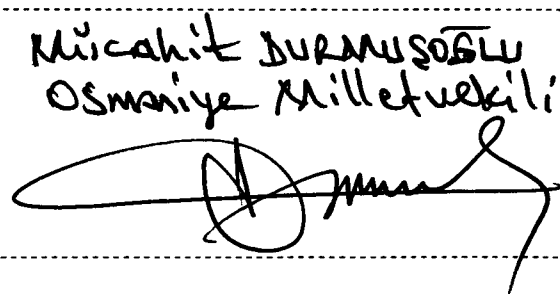 Mücahit DURMUŞOĞLU
Osmaniye Milletvekili